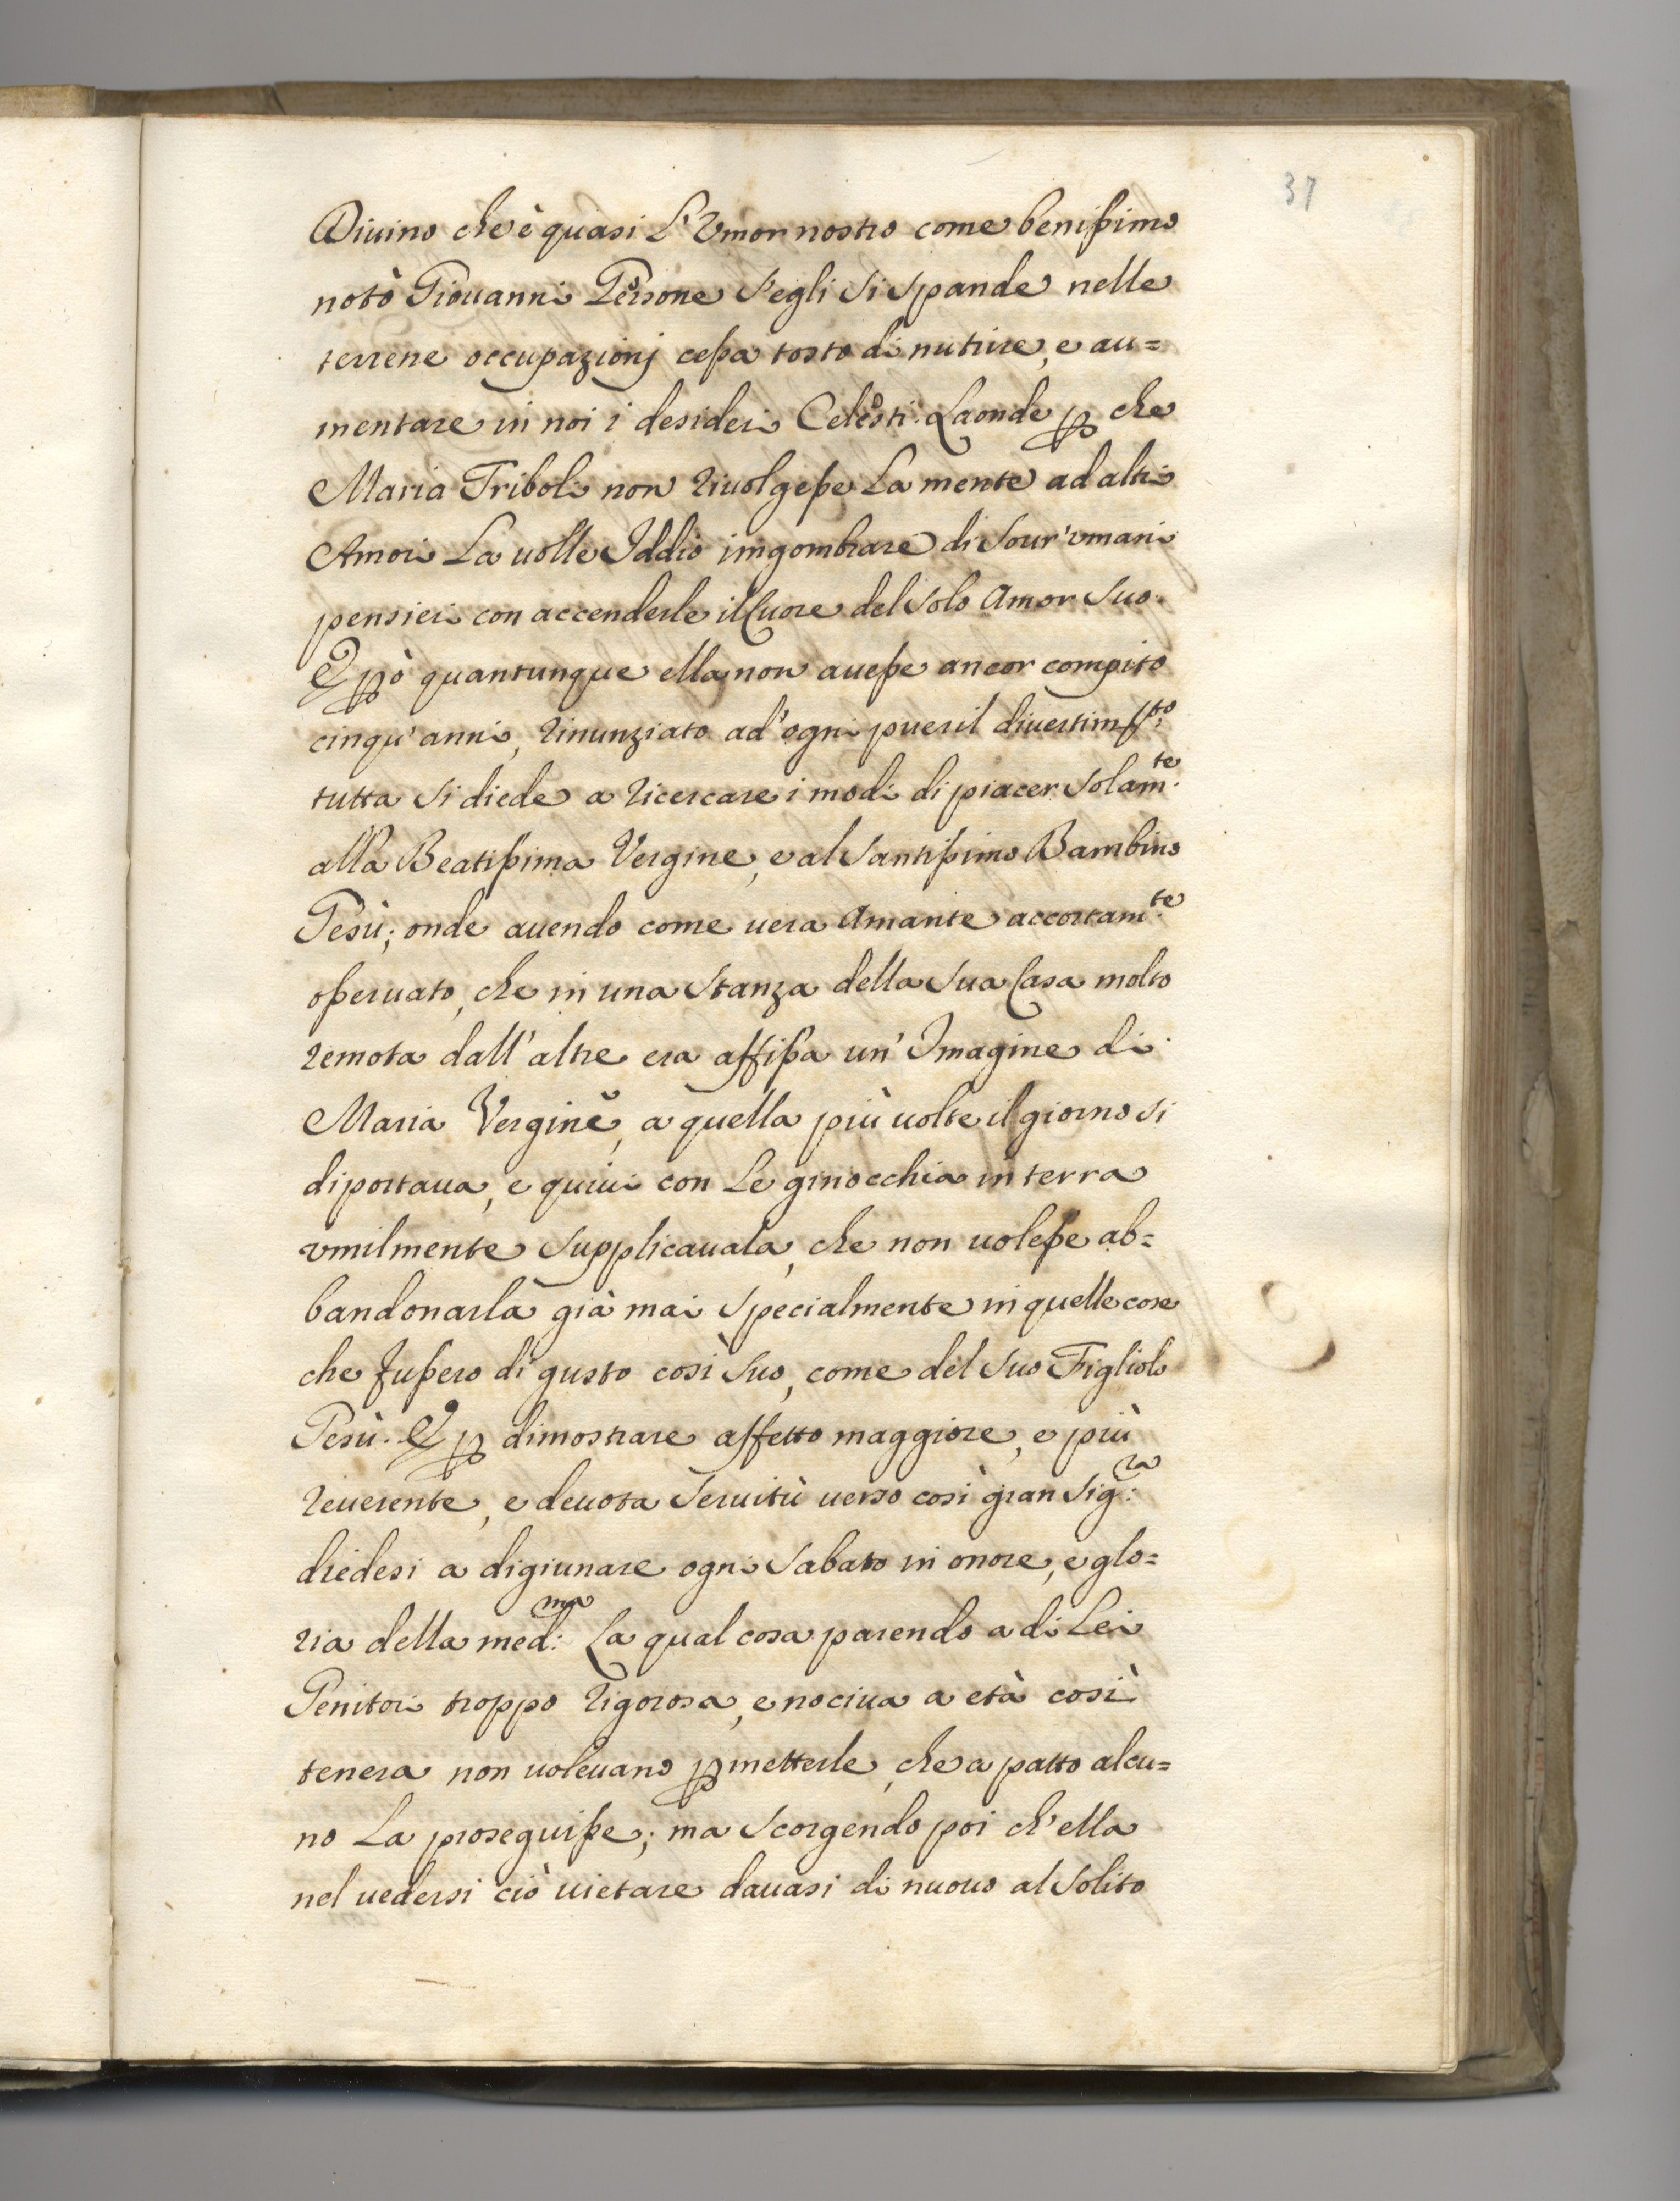 37
Diuino che è quasi L'Vmor nostro come benißimo
notò Giouanni Gersone s'egli si spande nelle
terrene occupazionj ceßa tosto di nutrire, e au=
mentare in noi i desideri Celesti. Laonde p che
Maria Triboli non riuolgeße La mente ad altri
Amori La uolle Iddio imgombrare di sour'vmani
pensieri con accenderle il Cuore del solo Amor suo.
E pò quantunque ella non aueße ancor compito
cinqu'anni, rinunziato ad'ogni pueril diuertim.to
tutta si diede a ricercare i modi di piacer solam.te
alla Beatißima Vergine, e al Santißimo Bambino
Gesù; onde auendo come uera Amante accortam.te
oßeruato, che in una stanza della sua Casa molto
remota dall'altre era affißa un'Imagine di
Maria Vergine, a quella più uolte il giorno si
diportaua, e quiui con Le ginocchia in terra
vmilmente supplicauala, che non uoleße ab=
bandonarla già mai specialmente in quelle cose
che fußero di gusto così suo, come del suo Figliolo
Gesù. E p dimostrare affetto maggiore, e più
reuerente, e deuota seruitù uerso così gran Sig:ra
diedesi a digiunare ogni Sabato in onore, e glo=
ria della med:ma La qual cosa parendo a di Lei
Genitori troppo rigorosa, e nociua a età così
tenera non uoleuano pmetterle, che a patto alcu=
no La proseguiße; ma scorgendo poi ch'ella
nel uedersi ciò uietare dauasi di nuouo al solito